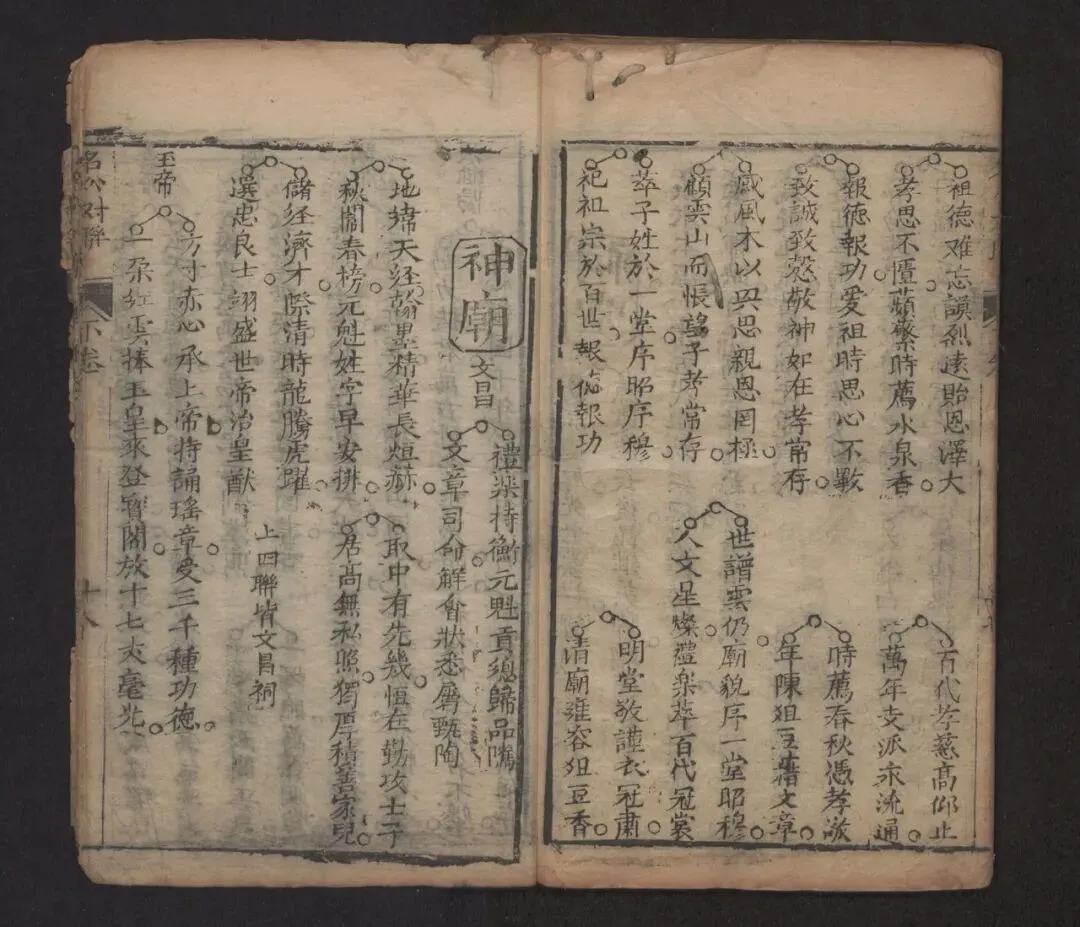 祖德难忘謨烈遠貽恩澤大
百代孝慈高仰止
孝思不匱蘋蘩時薦水泉香
萬年支派永流通
報德報功愛祖時思心不斁
時薦春秋憑孝
致誠致愨敬神如在孝常存
年陳俎豆藉文章
感風木以興思親恩罔極
世譜雲仍廟貌序一堂昭穆
顧雲山而悵望子孝常存
人文星燦禮樂萃百代冠裳
萃子姓於一堂序昭序穆
明堂敬謹衣冠肅
祀祖宗於百世報德報功
清廟雍容俎豆香
神廟
文昌
禮樂持衡元魁貢總歸品隲
文章司命解會狀悉屬甄陶
地緯天經翰墨精華長烜赫
取中有先幾恆在勤攻士子
秋闈春榜元魁姓字早安排
居高無私照獨厚積善家兒
儲經濟才際清時龍騰虎躍
選忠良士翊盛世帝治皇猷
上四聯皆文昌祠
玉帝
方寸赤心承上帝持誦瑤章受三千種功德
一朵紅雲捧玉皇來登寶閣放十七丈毫光
名公对聯
下卷
十八